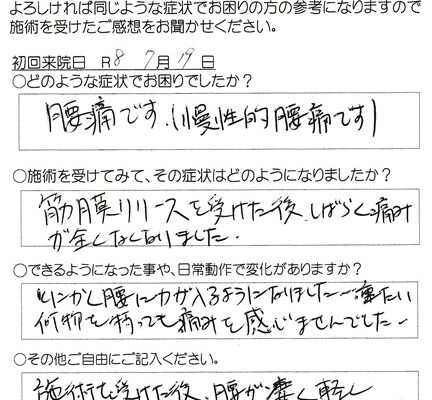 よろしければ同じような症状でお困りの方の参考になりますので
施術を受けたご感想をお聞かせください。
初回来院日 R8 7月19日
○どのような症状でお困りでしたか?
腰痛です.(慢性的腰痛です)
○施術を受けてみて、その症状はどのようになりましたか?
筋膜リリースを受けた後、しばらく痛み
が全くなくなりました.
○できるようになった事や、日常動作で変化がありますか?
とにかく腰に力が入るようになりました〜重たい
荷物を持っても痛みを感じませんでした〜
○その他ご自由にご記入ください。
施術を受けた後、腰が凄く軽し